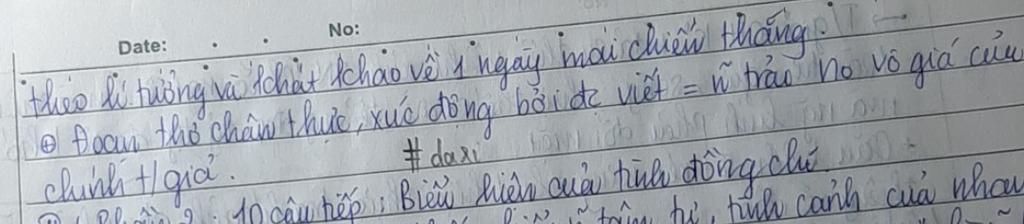 Date: . . No:
theo lí tưởng và khát khao về 1 ngày mai chiến thắng.
⊕ Đoạn thơ chân thực, xúc động bởi đc viết = ~ trải no vô giá của
chính t/giả. #daxi
10 câu tiếp: Biểu hiện của tình đồng chí
tâm tư, tình cảnh của nhau